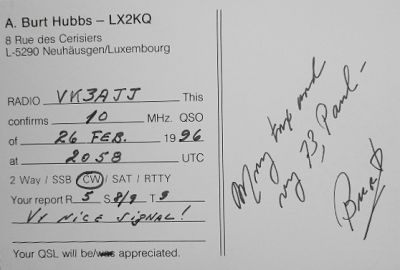 A. Burt Hubbs – LX2KQ
8 Rue des Cerisiers
L-5290 Neuhäusgen/Luxembourg
RADIO VK3AJJ This
confirms 10 MHz. QSO
of 26 FEB. 1996
at 2058 UTC
2 Way / SSB CW / SAT / RTTY
Your report R 5 S 8/9 T 9
VY NICE SIGNAL!
Your QSL will be/was appreciated.
Many tnx and
vy 73, Paul –
Burt